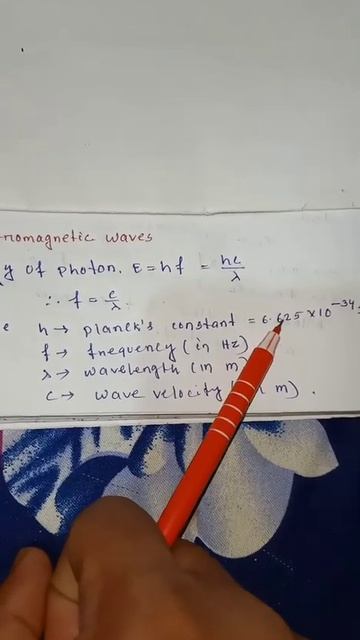 romagnetic waves
y of photon, E = hf = hc/λ
∴ f = c/λ
e h → planck's constant = 6.625 × 10⁻³⁴
f → frequency (in Hz)
λ → wavelength (in m)
c → wave velocity ( m) .